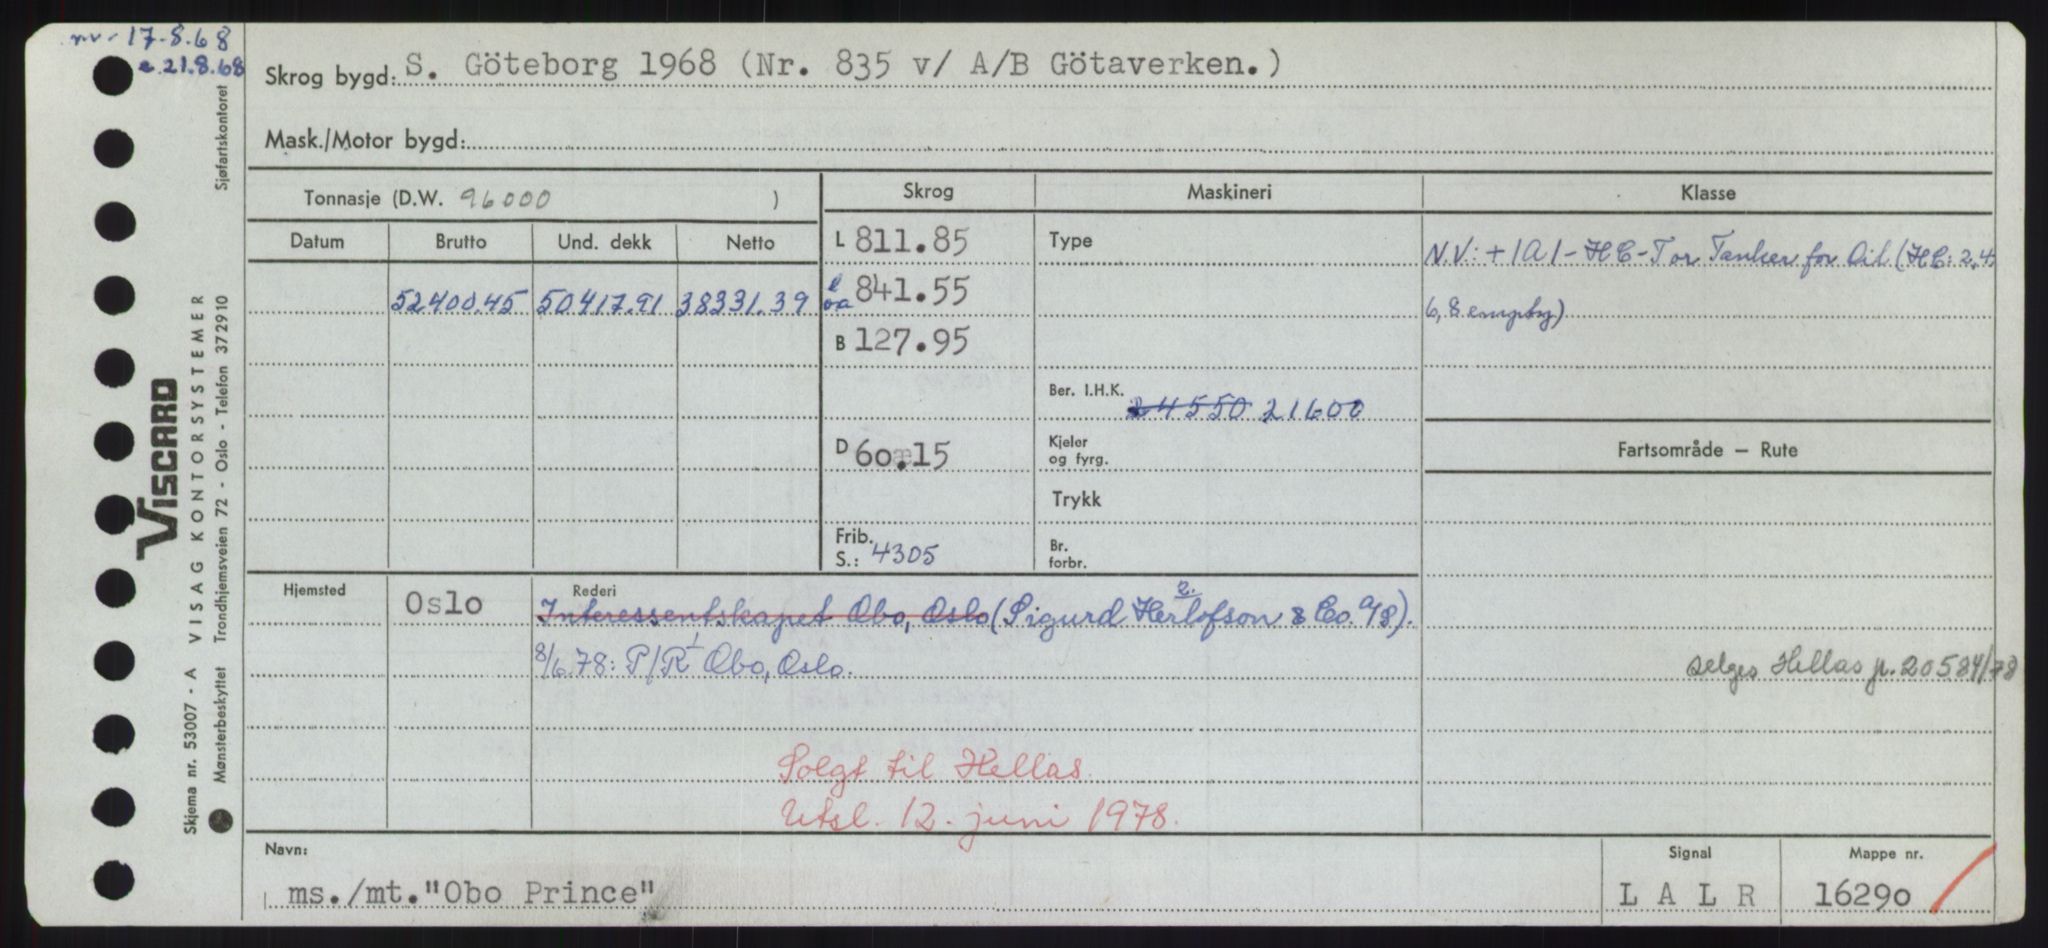 nv. 17.8.68
e. 21.8.68
Skrog bygd: S. Göteborg 1968 (Nr. 835 v/ A/B Götaverken.)
Mask./Motor bygd:
Tonnasje (D.W. 96000 )
Skrog Maskineri Klasse
Datum Brutto Und. dekk Netto
L 811.85
Type
N.V: + 1A1 - HC - T or Tanker for Oil (HC: 2,4
52400.45 50417.91 38331.39
l oa 841.55
6,8 empty)
B 127.95
Ber. I.H.K. 24550 21600
D 60.15
Kjeler og fyrg.
Fartsområde – Rute
Trykk
Frib. S.: 4305
Br. forbr.
Hjemsted Oslo
Rederi
Interessentskapet Obo, Oslo (Sigurd Herlofson & Co. A/S).
8/6.78: P/R Obo, Oslo.
selges Hellas jr. 20584/78
Solgt til Hellas.
Utsl. 12. juni 1978.
Navn: ms./mt. "Obo Prince"
Signal L A L R
Mappe nr. 16290
Skjema nr. 53007 - A VISAG KONTORSYSTEMER
VISCARD
Mønsterbeskyttet Trondhjemsveien 72 - Oslo - Telefon 372910 Sjøfartskontoret